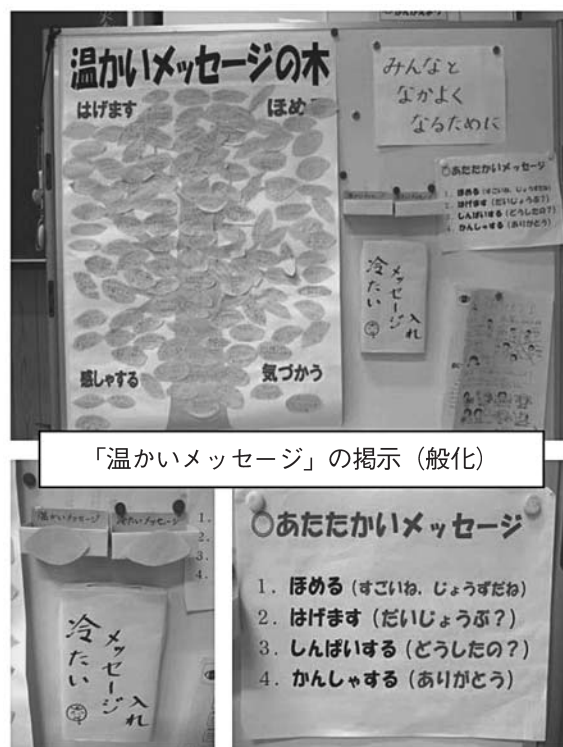 温かいメッセージの木
はげます
ほめ
感しゃする
気づかう
みんなと
なかよく
なるために
○あたたかいメッセージ
1. ほめる (すごいね、じょうずだね)
2. はげます (だいじょうぶ？)
3. しんぱいする (どうしたの？)
4. かんしゃする (ありがとう)
冷たい
メッセージ
入れ
「温かいメッセージ」の掲示（般化）
温かいメッセージ
冷たいメッセージ
1.
2.
3.
4.
冷たい
メッセージ
入れ
○あたたかいメッセージ
1. ほめる (すごいね、じょうずだね)
2. はげます (だいじょうぶ？)
3. しんぱいする (どうしたの？)
4. かんしゃする (ありがとう)